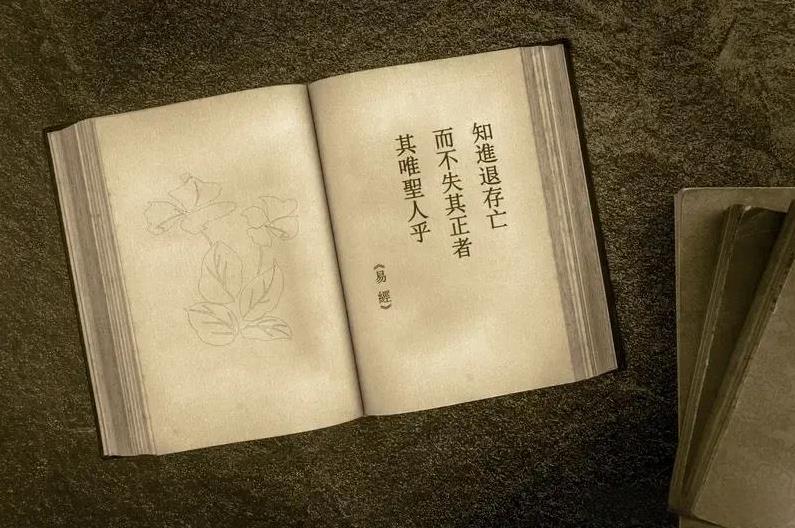 知進退存亡
而不失其正者
其唯聖人乎
《易經》